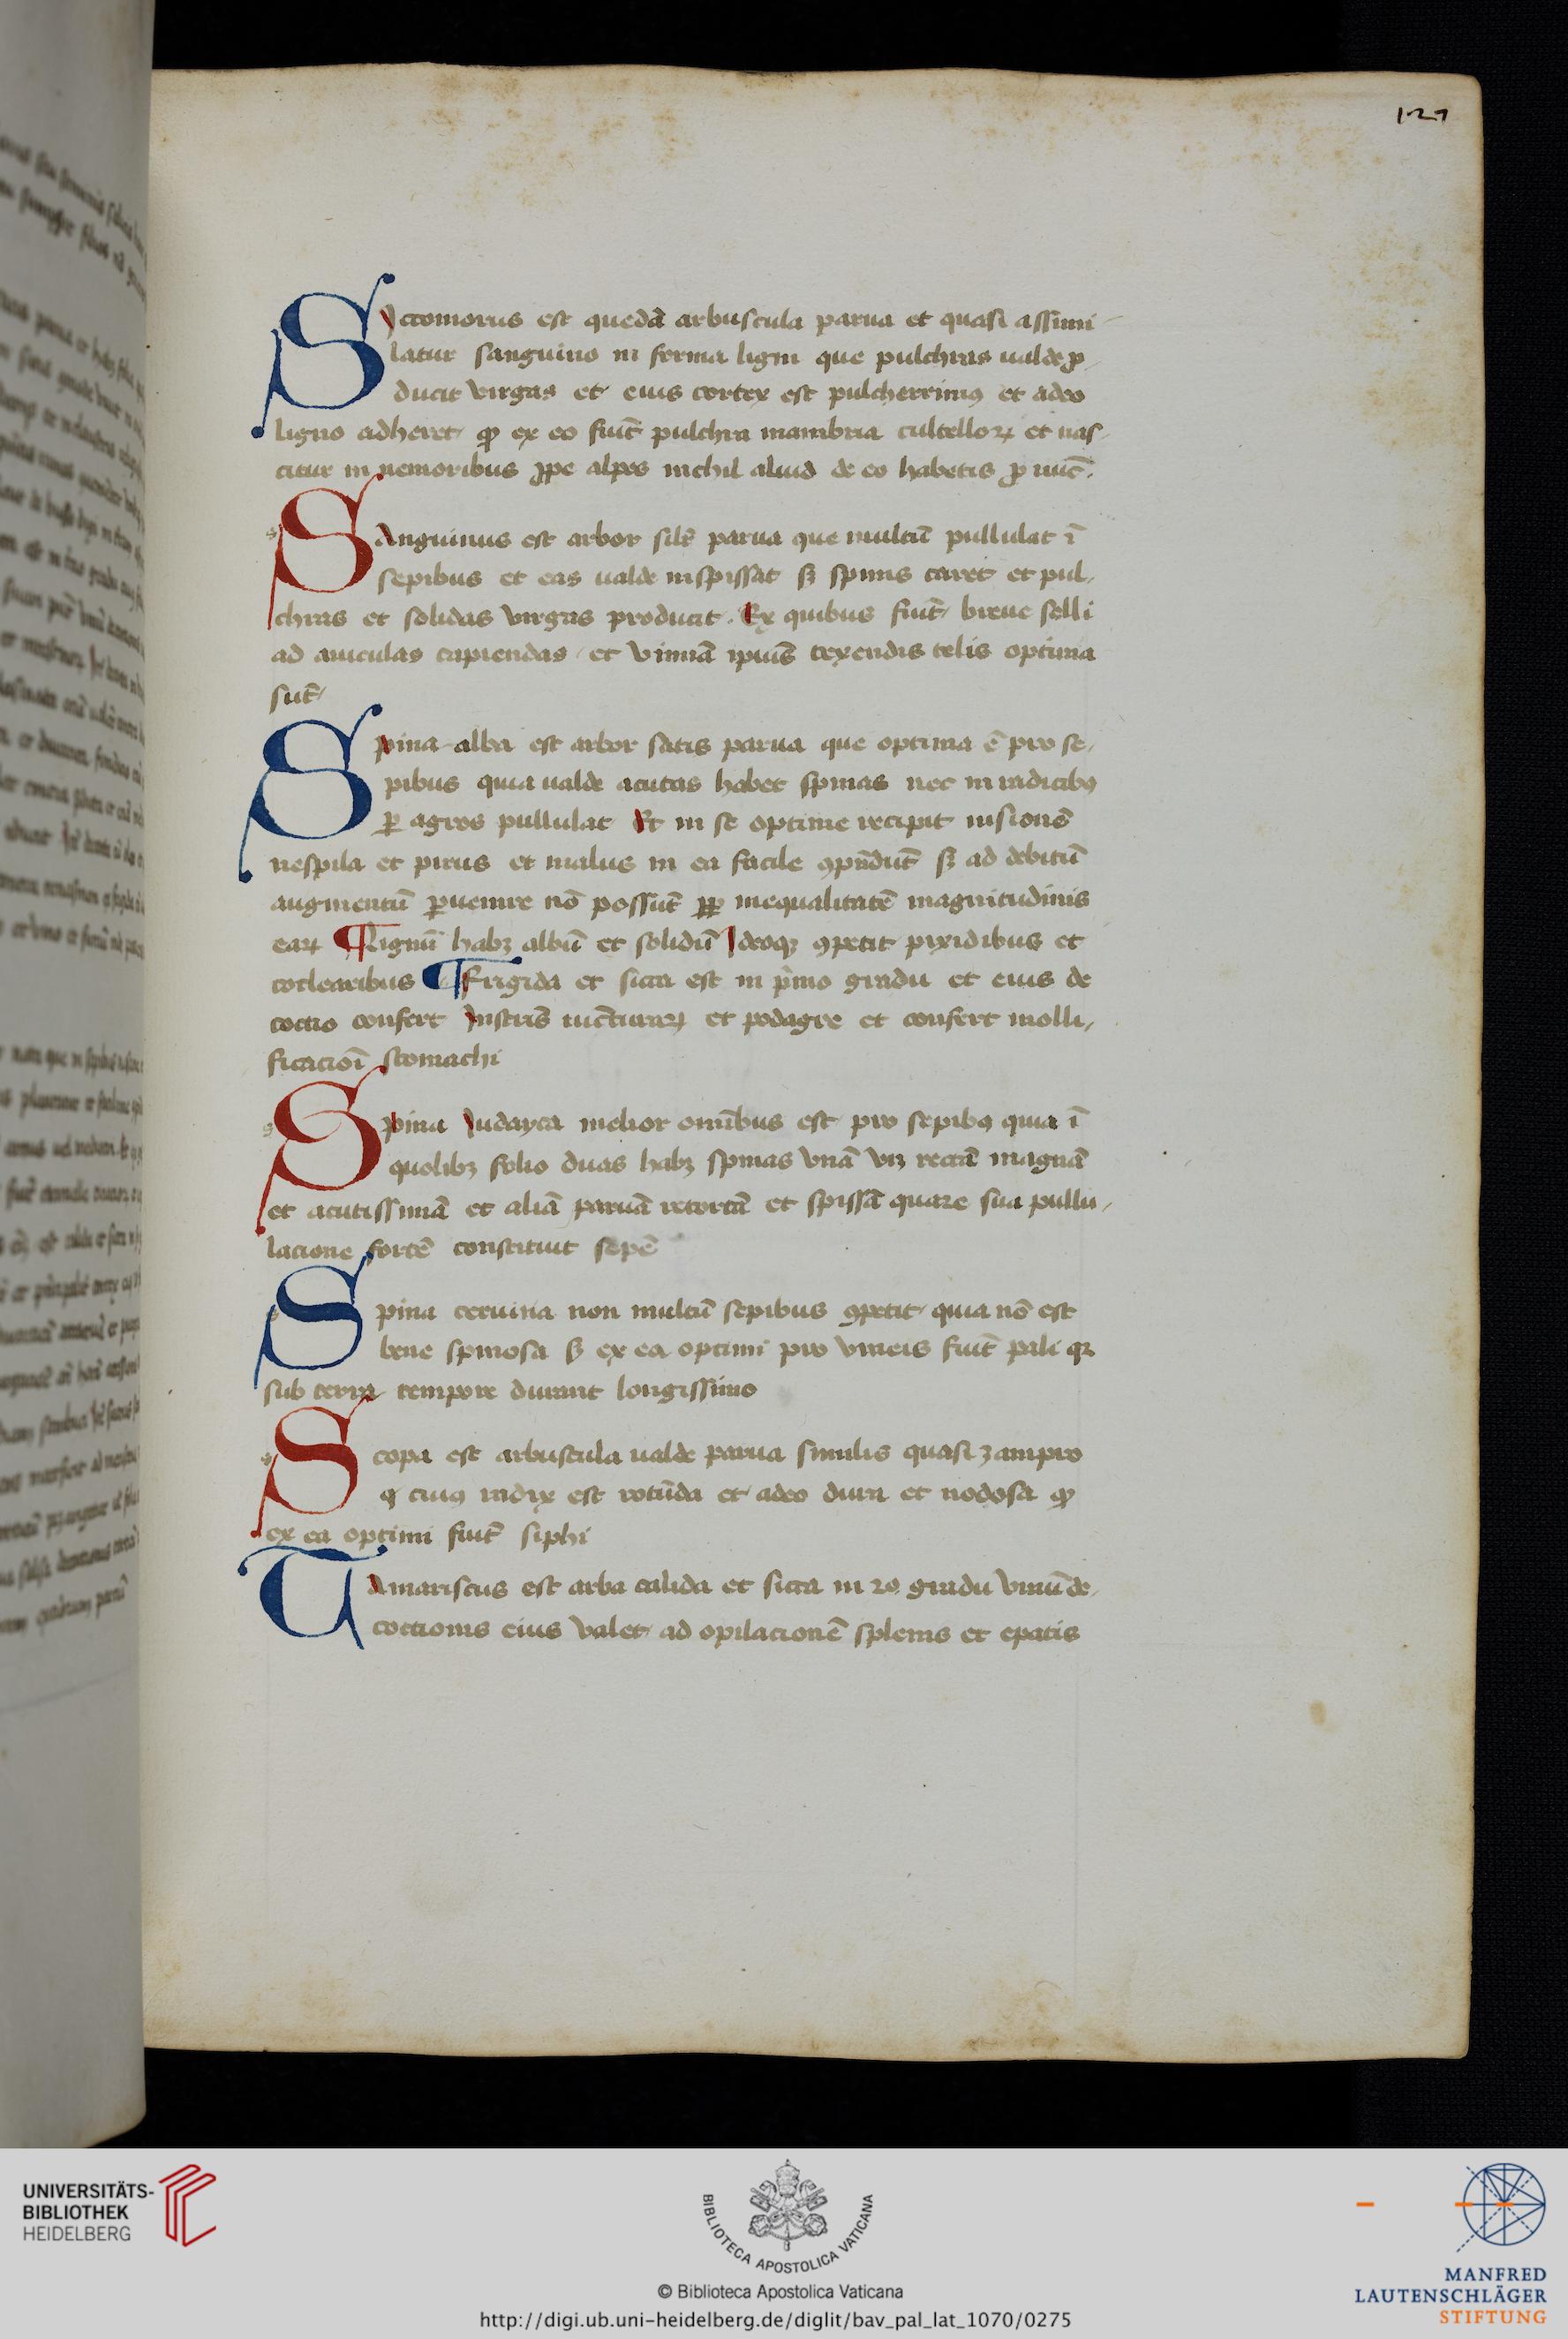 127
Siccomorus est quedā arbuscula parua et quasi assimi
latur sanguino in forma ligni que pulchras ualde ꝓ
ducit virgas et eius cortex est pulcherrimꝯ et adeo
ligno adheret ꝙ ex eo fiūt pulchra manubria cultelloꝝ et nas
citur in nemoribus ꝓpe alpes nichil aliud de eo habetis ꝓ nūc.
Sanguinus est arbor silꝭ parua que multū pullulat ī
sepibus et eas ualde inspissat sꝫ spinis caret et pul
chras et solidas virgas producit. Ex quibus fiūt breue selli
ad auiculas capiendas et texendis telis optima
sūt
Spina alba est arbor satis parua que optima ē pro se
pibus quia ualde acutas habet spinas nec in radicibꝯ
ꝑ agros pullulat Et in se optime recipit insionē
nespila et pirus et malus in ea facile ꝯpndūt sꝫ ad debitū
augmentū ꝑuenire nō possūt ꝓꝑ inequalitatē magnitudinis
eaꝝ Lignū habꝫ albū et solidū Ideoqꝫ ꝯpetit pixidibus et
coclearibus Frigida et sicca est in pͥmo gradu et eius de
coctio confert iūcturaꝝ et podagre et confert molli
ficacioī stomachi
Spina Iudayca melior omībus est pro sepibꝯ quia ī
quolibꝫ folio duas habꝫ spinas vnā vꝫ rectā magnā
et acutissimā et aliā paruā retortā et spissā quare sua pullu
lacione fortē constituit sepē
Spina ceruina non multū sepibus ꝯpetit quia nō est
bene spinosa sꝫ ex ea optimi pro vineis fiūt pali qꝛ
sub terra tempore durant longissimo
Scopa est arbuscula ualde parua similis quasi zampro
ꝗ cuiꝯ radix est rotūda et adeo dura et nodosa ꝙ
ex ea optimi fiūt siphi
Tamariscus est arba calida et sicca in 2o. gradu vinū de
coctionis eius valet ad opilacionē splenis et epatis
UNIVERSITÄTS-
BIBLIOTHEK
HEIDELBERG
BIBLIOTECA APOSTOLICA VATICANA
© Biblioteca Apostolica Vaticana
http://digi.ub.uni-heidelberg.de/diglit/bav_pal_lat_1070/0275
MANFRED
LAUTENSCHLÄGER
STIFTUNG